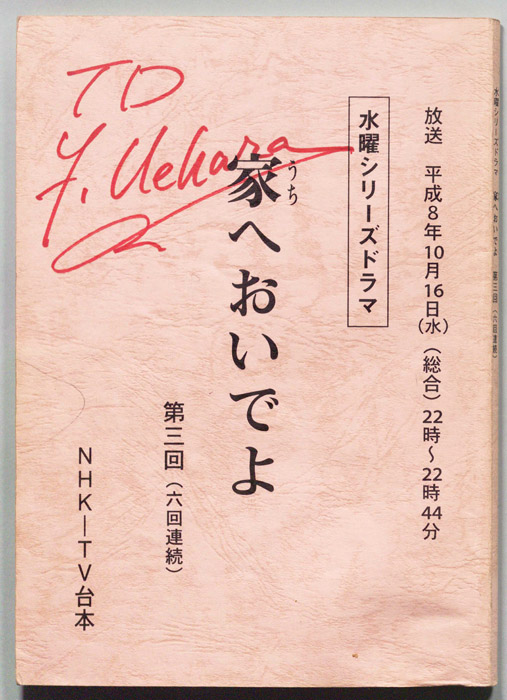 放送　平成8年10月16日（水）（総合）22時〜22時44分
水曜シリーズドラマ
家へおいでよ
うち
第三回（六回連続）
NHK―TV台本
TD
Y. Uehara
水曜シリーズドラマ　家へおいでよ　第三回（六回連続）